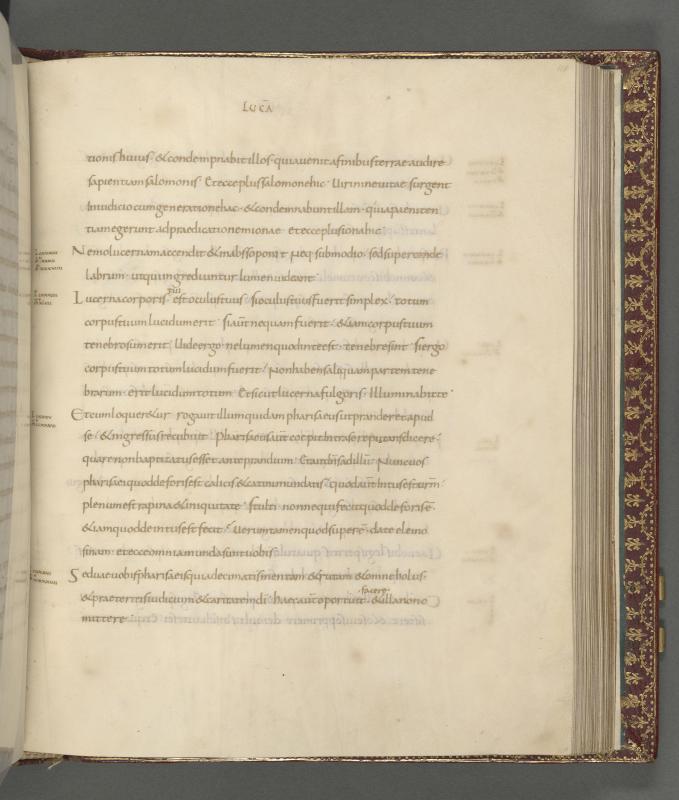 LUCĀ
tionis huius · & condempnabit illos · quia uenit a finibus terrae audire
sapientiam salomonis · Et ecce plus salomone hic · Uiri nineuitae surgent
In iudicio cum generatione hac · & condemnabunt illam · quia paeniten
tiam egerunt · ad praedicationem ionae · et ecce plus iona hic ·
Nemo lucernam accendit & in absso ponit · neq; sub modio · sed supra cande
labrum · ut qui ingrediuntur lumen uideant ·
Lucerna corporis tui est oculus tuus · si oculus tuus fuerit simplex · totum
corpus tuum lucidum erit · si aut̄ nequam fuerit · & iam corpus tuum
tenebrosum erit · Uide ergo ne lumen quod in te est · tenebre sint · si ergo
corpus tuum totum lucidum fuerit · Non habens aliquam partem tene
brarum · erit lucidum totum · Et sicut lucerna fulgoris · Illuminabit te ·
Et cum loquer&ur · rogauit illum quidam pharisaeus ut pranderet apud
se · & ingressus recubuit · Pharisaeus aut̄ coepit intra se reputans dicere ·
quare non baptizatus esset ante prandium · Et ait dn̄s ad illū · Nunc uos
pharisaei quod de foris est calicis & catini mundatis · quod aut̄ intus est ur̄m
plenum est rapina & iniquitate · stulti · nonne qui fecit quod de foris ē ·
& iam quod de intus est fecit · Uerum tamen quod super ē · date elemo
sinam · et ecce omnia munda sunt uobis ·
Sed uae uobis pharisaeis quia decimatis mentam & rutam & omne holus ·
facere
& praeteritis iudicium & caritatem dī · haec aut̄ oportuit · & illa non o
mittere ·